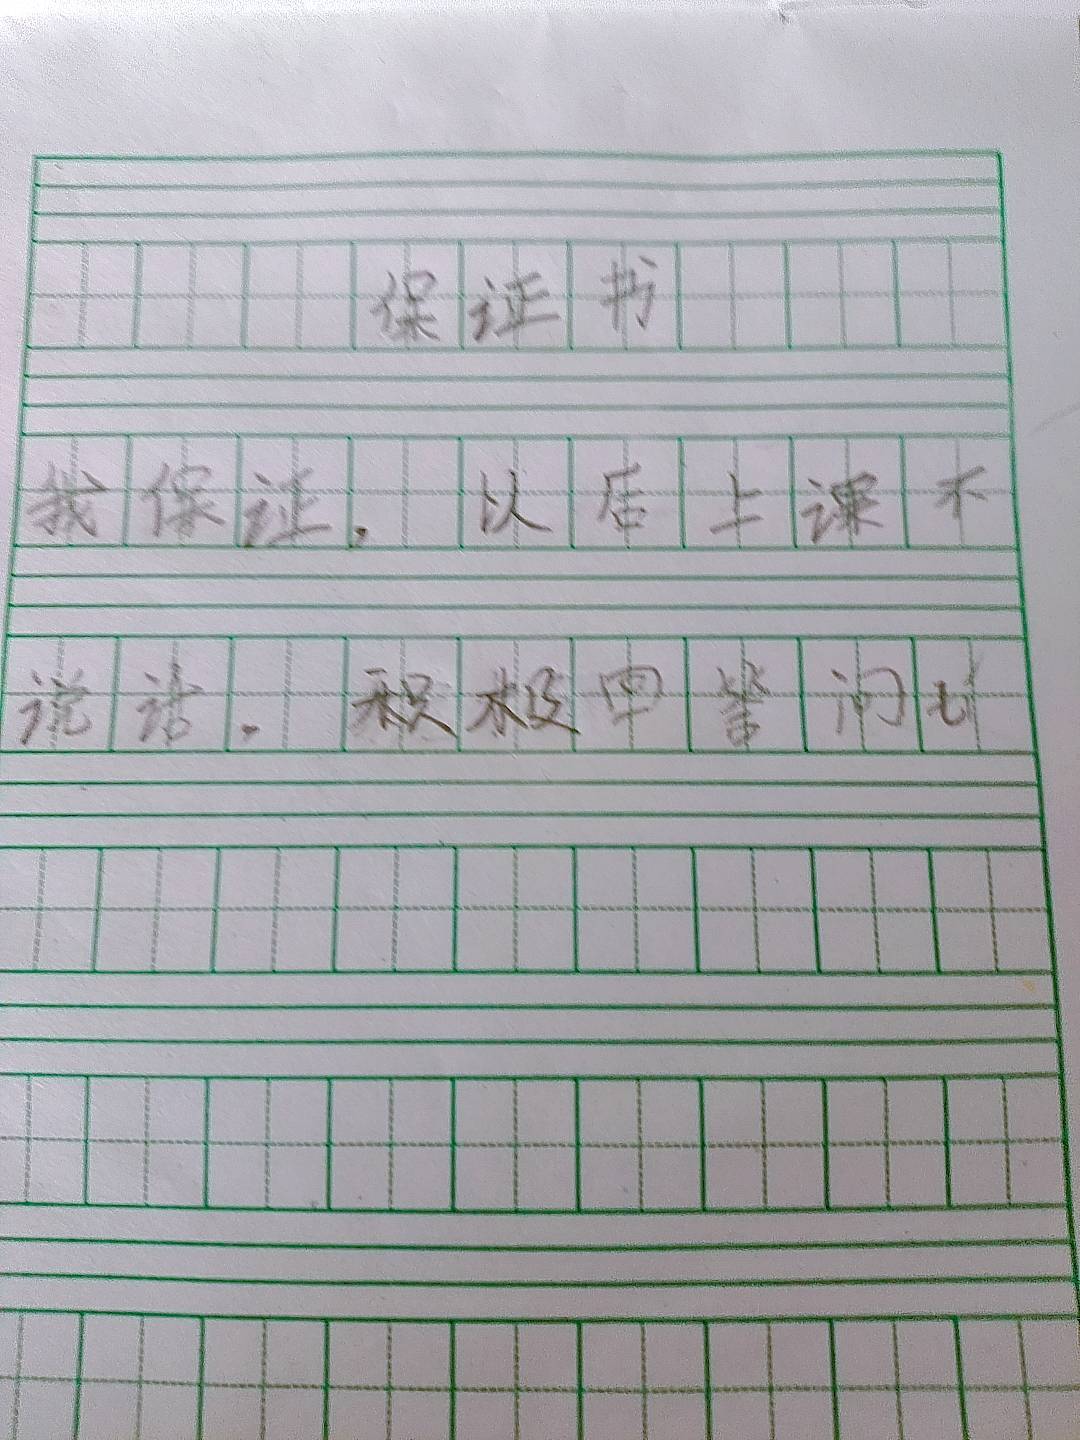 保证书
我保证. 以后上课不
说话. 积极回答问